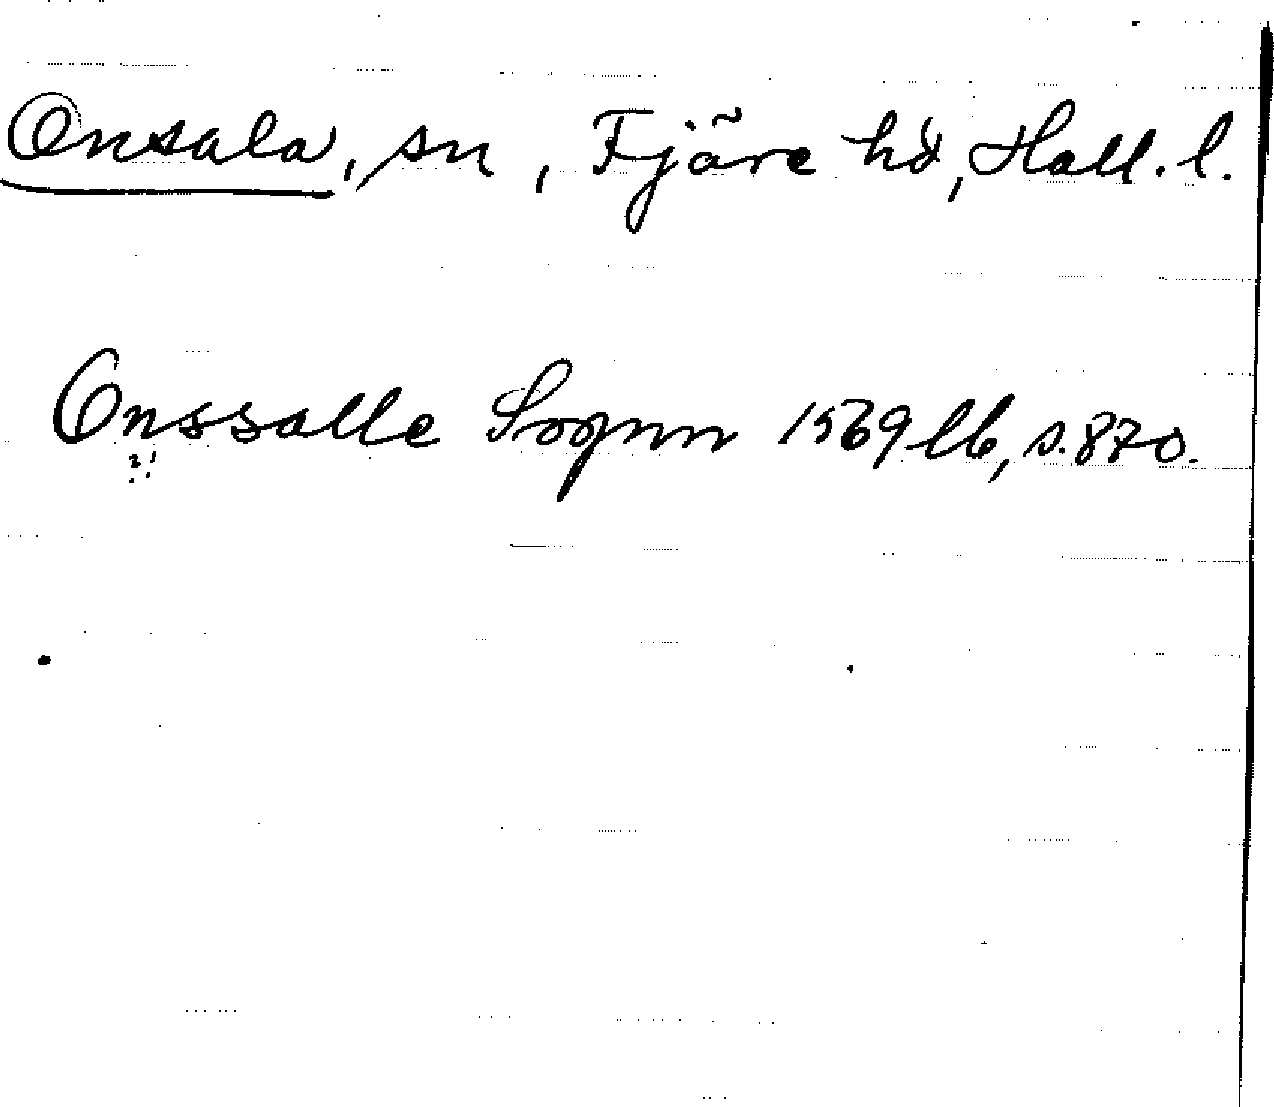 Onsala, sn, Fjäre hd, Hall. l.
Onssalle Sognn 1569 lb, s. 870.
?!